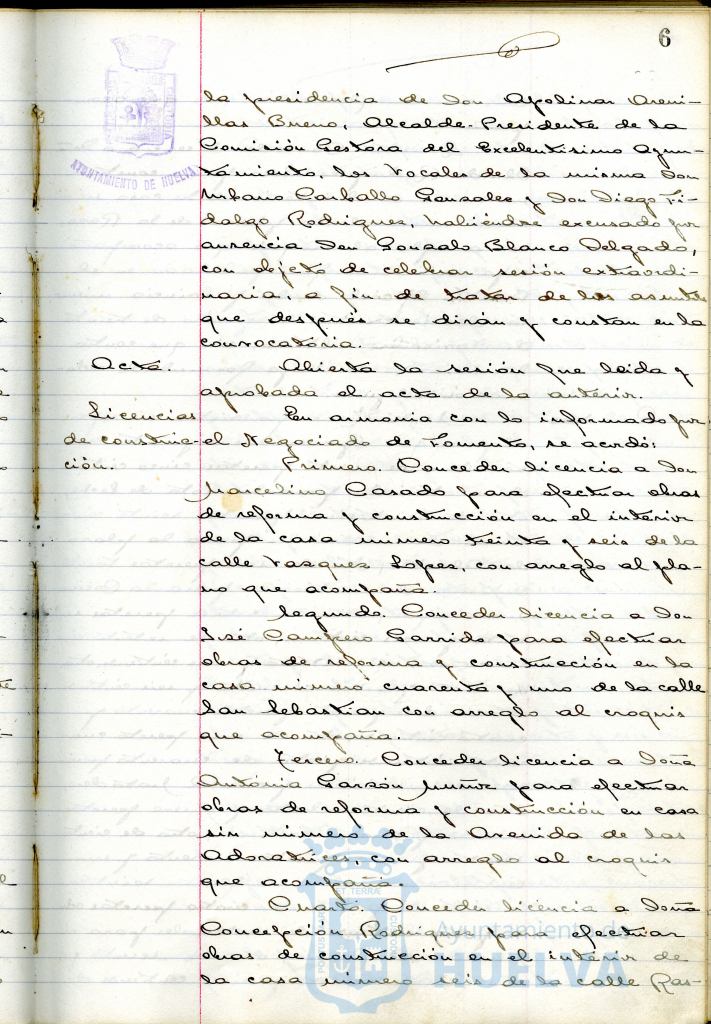 6
AYUNTAMIENTO DE HUELVA
la presidencia de Don Apolinar Areni-
llas Bueno, Alcalde-Presidente de la
Comisión Gestora del Excelentísimo Ayun-
tamiento, los Vocales de la misma Don
Urbano Carballo Gonzalez y Don Diego Fi-
dalgo Rodriguez, habiéndose excusado por
ausencia Don Gonzalo Blanco Delgado,
con objeto de celebrar sesión extraordi-
naria, a fin de tratar de los asuntos
que después se dirán y constan en la
convocatoria.
Acta.
Abierta la sesión fue leida y
aprobada el acta de la anterior.
Licencias
de construc-
ción.
En armonia con lo informado por
el Negociado de Fomento, se acordó:
Primero. Conceder licencia a Don
Marcelino Casado para efectuar obras
de reforma y construcción en el interior
de la casa número treinta y seis de la
calle Vazquez Lopez, con arreglo al pla-
no que acompaña.
Segundo. Conceder licencia a Don
José Campero Garrido para efectuar
obras de reforma y construcción en la
casa número cuarenta y uno de la calle
San Sebastian con arreglo al croquis
que acompaña.
Tercero. Conceder licencia a Doña
Antónia Garzón Muñoz para efectuar
obras de reforma y construcción en casa
sin número de la Avenida de las
Adoratrices, con arreglo al croquis
que acompaña.
Cuarto. Conceder licencia a Doña
Concepción Rodriguez para efectuar
obras de construcción en el interior de
la casa número seis de la calle Ras-
Ayuntamiento de
HUELVA